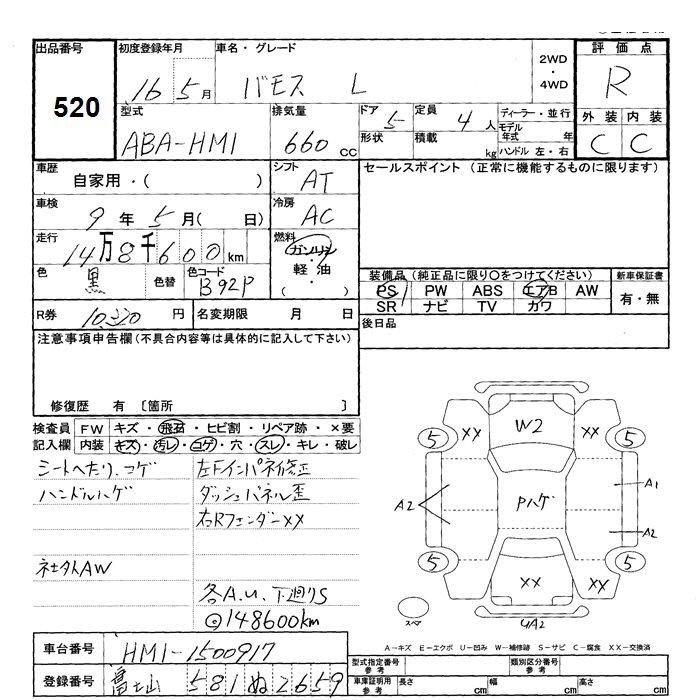 出品番号 初度登録年月 車名・グレード 評価点
520 16 5月 バモス L 2WD・4WD R
型式 排気量 ドア 5 定員 4人 ディーラー・並行 外装 内装
ABA-HM1 660 CC 形状 積載 kg モデル年式 年 ハンドル 左・右 C C
車歴 自家用・( ) シフト AT セールスポイント (正常に機能するものに限ります)
車検 9年 5月( 日) 冷房 AC
走行 14万8千600km 燃料 ガソリン・軽油・( )
色 黒 色替 色コード B92P 装備品 (純正品に限り○をつけてください) 新車保証書
PS PW ABS エアB AW 有・無
SR ナビ TV カワ
R券 10,320円 名変期限 月 日 後日品
注意事項申告欄 (不具合内容等は具体的に記入して下さい)
修復歴 有 〔箇所 〕
検査員 FW キズ・飛石・ヒビ割・リペア跡・×要
記入欄 内装 キズ・汚レ・コゲ・穴・スレ・キレ・破レ
シートへたり、コゲ 左Fインパネ修正
ハンドルハゲ ダッシュパネル歪
右Rフェンダーxx
社外AW
各A.U、下廻りS
◎148600km
5 xx W2 xx 5
A2 Pハゲ A1
A2
5 xx xx 5
スペア UA2
A−キズ E−エクボ U−凹み W−補修跡 S−サビ C−腐食 XX−交換済
車台番号 HM1-1500917
型式指定番号 参考 類別区分番号 参考
登録番号 富士山 581 ぬ 2659
車庫証明用 参考 長さ cm 幅 cm 高さ cm